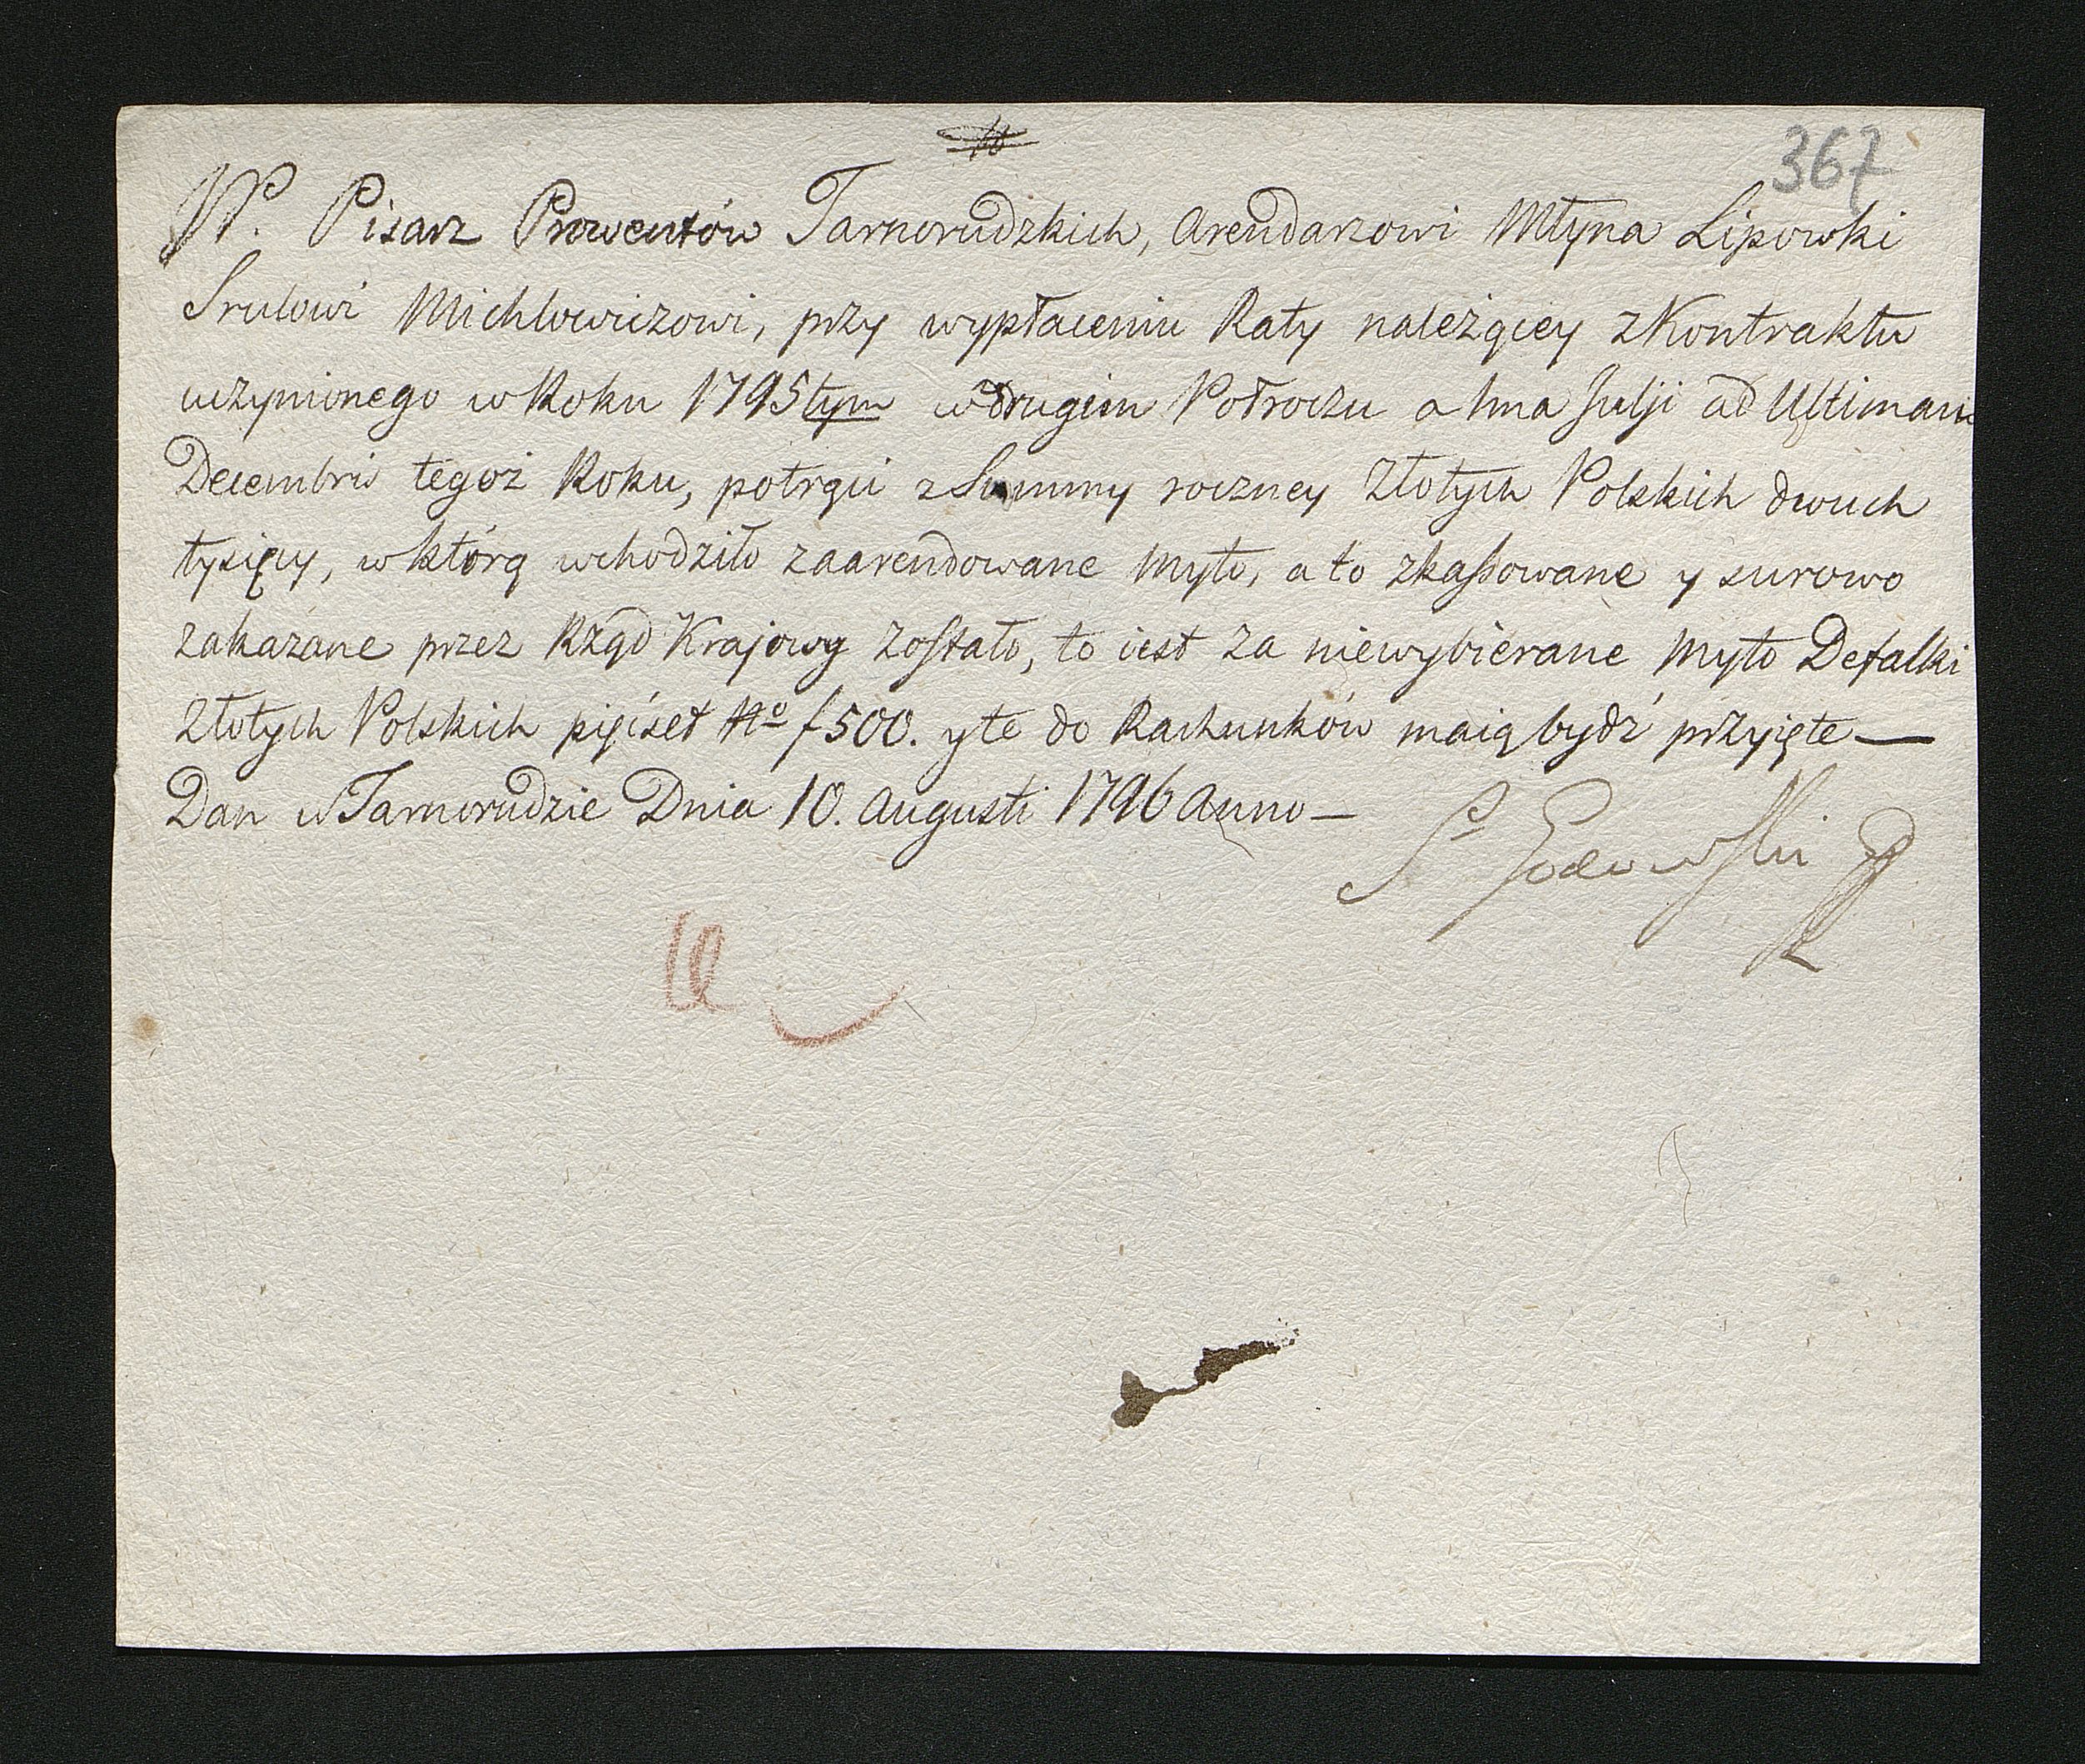 367
W. Pisarz Prowentów Tarnorudzkich, Arendarzowi Młyna Lipowki
Srulowi Michlowiczowi, przy wypłaceniu Raty należącey z Kontraktu
uczynionego w Roku 1795tym w drugim Połroczu a 1ma Julji ad Ultimam
Decembris tegoż Roku, potrąci z Summy roczney Złotych Polskich dwuch
tysięcy, w którą wchodziło zaarendowane Myto, a to zkassowane y surowo
zakazane przez Rząd Krajowy zostało, to iest za niewybierane Myto Defalki
Złotych Polskich pięćset No f 500. y te do Rachunków maią bydź przyięte —
Dan w Tarnorudzie Dnia 10. Augusti 1796 Anno —